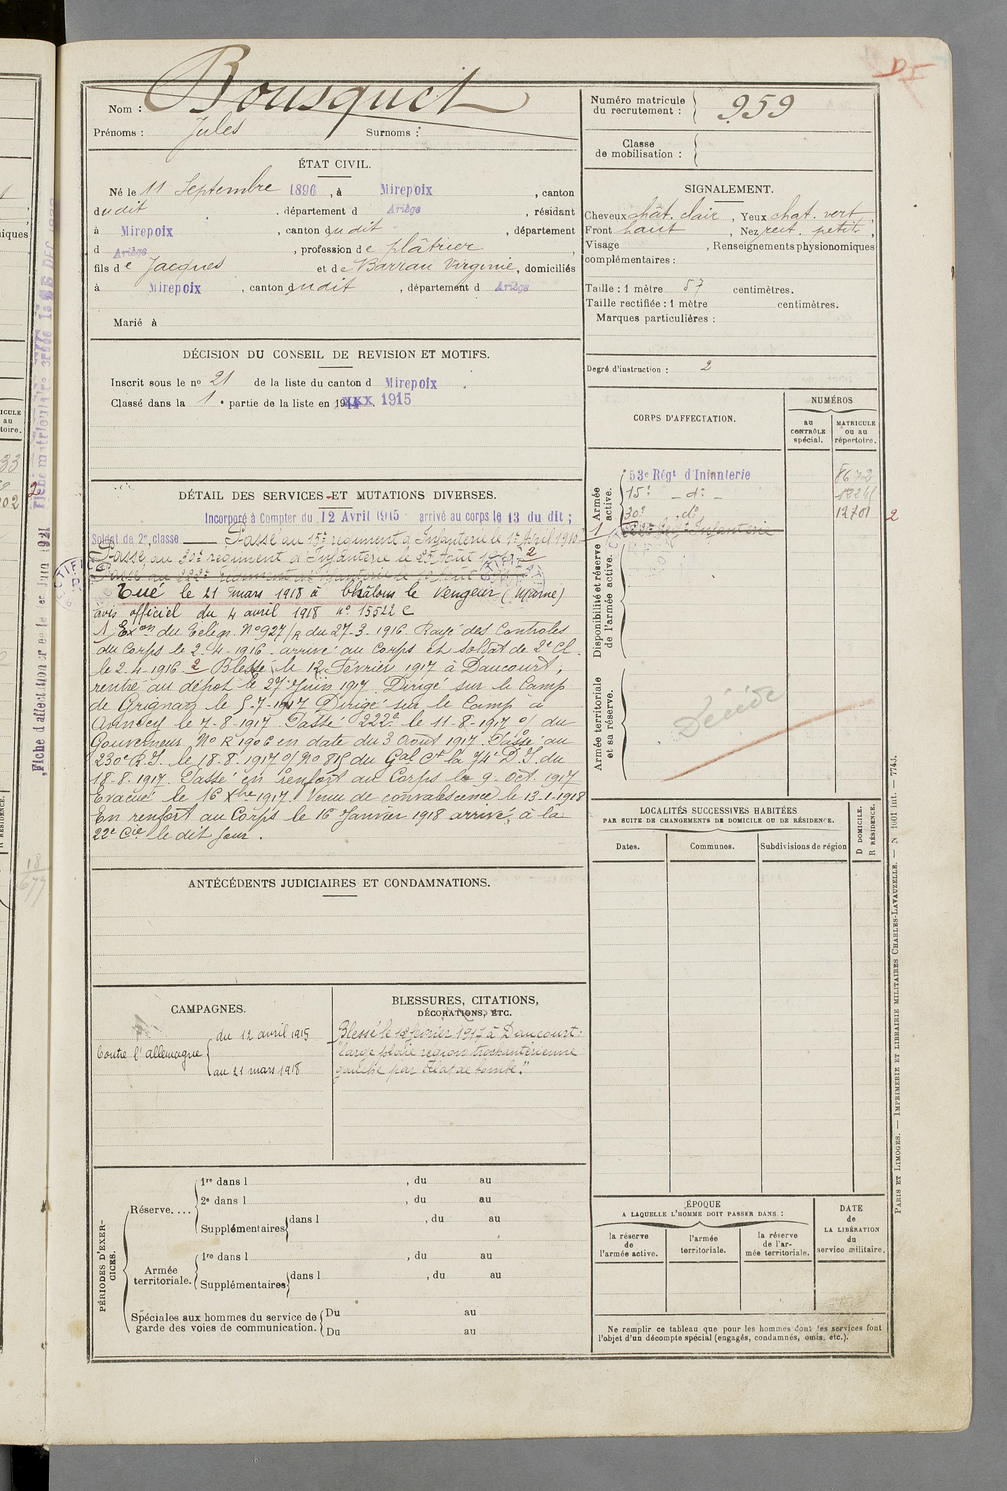 Nom : Bousquet
Prénoms : Jules Surnoms :
Numéro matricule du recrutement : 959
Classe de mobilisation :
ÉTAT CIVIL.
Né le 11 Septembre 1896, à Mirepoix, canton
dudit, département d Ariège, résidant
à Mirepoix, canton dudit, département
d Ariège, profession de plâtrier,
fils de Jacques et de Barrau Virginie, domiciliés
à Mirepoix, canton dudit, département d Ariège
Marié à
SIGNALEMENT.
Cheveux chât. clair, Yeux chat. vert,
Front haut, Nez rect. petit,
Visage , Renseignements physionomiques
complémentaires :
Taille : 1 mètre 57 centimètres.
Taille rectifiée : 1 mètre centimètres.
Marques particulières :
Degré d'instruction : 2
DÉCISION DU CONSEIL DE REVISION ET MOTIFS.
Inscrit sous le nº 21 de la liste du canton d Mirepoix.
Classé dans la 1e partie de la liste en 1915
DÉTAIL DES SERVICES ET MUTATIONS DIVERSES.
Incorporé à Compter du 12 Avril 1915 arrivé au corps le 13 du dit ;
Soldat de 2e classe — Passé au 15e régiment d'Infanterie le 1er Avril 1916
Passé au 30e régiment d'Infanterie le
Passé au 222e régiment d'Infanterie le
Tué le 21 mars 1918 à Châlons le Vengeur (Marne)
avis officiel du 4 avril 1918 nº 15522 C
1 Exon du Télég. Nº 927/R du 27-3-1916. Rayé des Contrôles
du Corps le 2-4-1916. arrivé au Corps et soldat de 2e Cl.
le 2-4-1916. 2 Blessé le 12 Février 1917 à Dancourt,
rentré au dépôt le 27 Juin 1917. Dirigé sur le Camp
de Grignan le 5-7-1917 Dirigé sur le Camp d
Annecy le 7-8-1917 Passé 222e le 11-8-1917 o/ du
Gouverneur Nº R 1906 en date du 3 Août 1917. Passé au
230e R.I. le 18-8-1917 o/ Nº du Gal Ct la 74e D.I. du
18-8-1917. Passé en renfort au Corps le 9 Oct. 1917
Evacué le 16 Xbre 1917. Venu de convalescence le 13-1-1918
En renfort au Corps le 16 Janvier 1918 arrivé à la
22e Cie le dit jour.
CORPS D'AFFECTATION.
NUMÉROS
au CONTRÔLE spécial.
MATRICULE ou au répertoire.
Armée active.
53e Régt d'Infanterie
15e — do —
30e do 12701 2
Disponibilité et réserve de l'armée active.
Armée territoriale et sa réserve.
Décédé
LOCALITÉS SUCCESSIVES HABITÉES
PAR SUITE DE CHANGEMENTS DE DOMICILE OU DE RÉSIDENCE.
Dates.
Communes.
Subdivisions de région
D DOMICILE.
R RÉSIDENCE.
ANTÉCÉDENTS JUDICIAIRES ET CONDAMNATIONS.
CAMPAGNES.
Contre l'allemagne
du 12 avril 1915
au 21 mars 1918
BLESSURES, CITATIONS,
DÉCORATIONS, ETC.
Blessé le 12 février 1917 à Dancourt:
"large plaie région trochantérienne
gauche par éclat de bombe."
PÉRIODES D'EXERCICES.
Réserve....
1re dans l , du au
2e dans l , du au
Supplémentaires dans l , du au
Armée territoriale.
1re dans l , du au
Supplémentaires dans l , du au
Spéciales aux hommes du service de
garde des voies de communication.
Du au
Du au
ÉPOQUE
A LAQUELLE L'HOMME DOIT PASSER DANS :
la réserve de l'armée active.
l'armée territoriale.
la réserve de l'armée territoriale.
DATE
de
LA LIBÉRATION
du
service militaire.
Ne remplir ce tableau que pour les hommes dont les services font
l'objet d'un décompte spécial (engagés, condamnés, omis, etc.).
PARIS ET LIMOGES. — IMPRIMERIE ET LIBRAIRIE MILITAIRES CHARLES-LAVAUZELLE. — N 1001 int. — 774J.